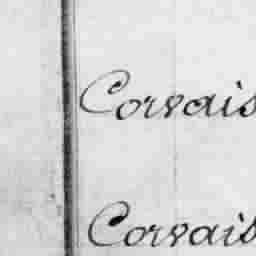 Corvais
Corvais